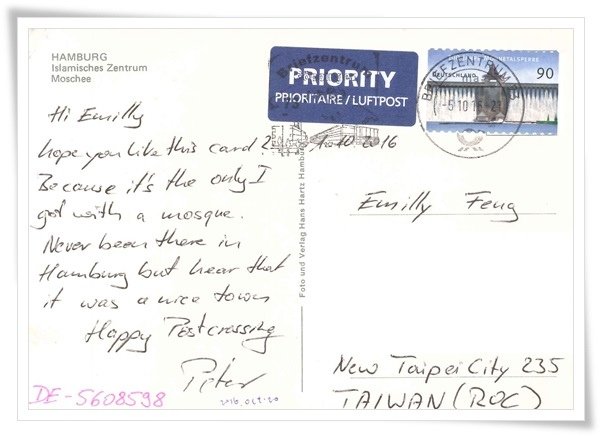 HAMBURG
Islamisches Zentrum
Moschee
PRIORITY
PRIORITAIRE / LUFTPOST
DEUTSCHLAND
90
BRIEFZENTRUM
Briefzentrum
Hi Emilly
hope you like this card?
1.10.2016
Because it's the only I
got with a mosque.
Never been there in
Hamburg but hear that
it was a nice town
Happy Postcrossing
Peter
DE-5608598
2016.OCT.20
Foto und Verlag Hans Hartz Hamburg
Emilly Feng
New Taipei City 235
TAIWAN (ROC)